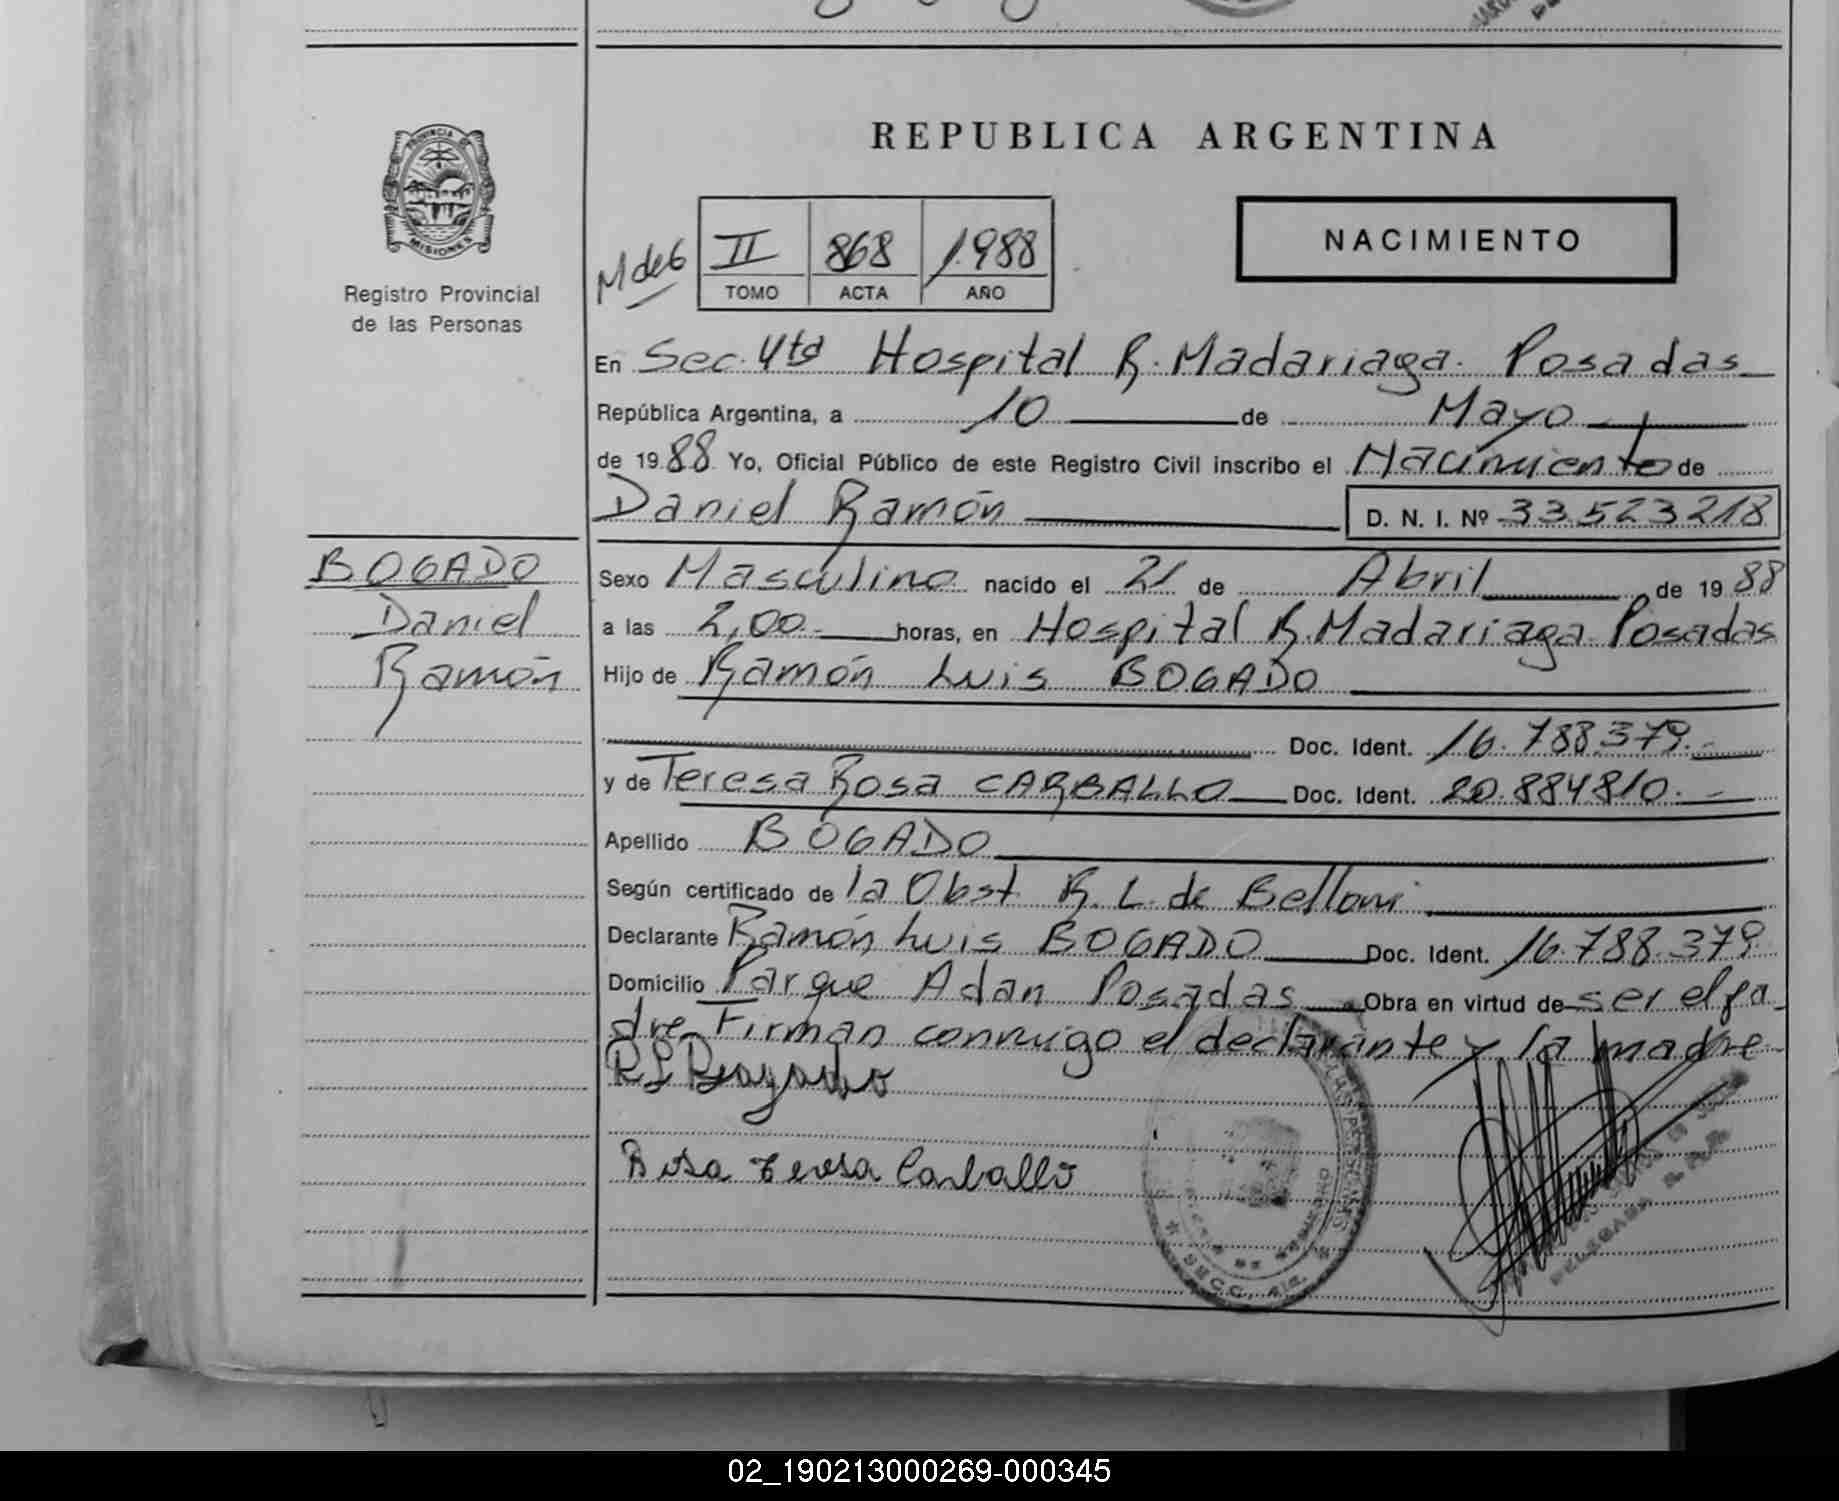 REPUBLICA ARGENTINA
PROVINCIA DE
MISIONES
Registro Provincial
de las Personas
M de 6
II
868
1988
TOMO
ACTA
AÑO
NACIMIENTO
En Sec. 4ta Hospital R. Madariaga. Posadas
República Argentina, a 10 de Mayo
de 1988 Yo, Oficial Público de este Registro Civil inscribo el Nacimiento de
Daniel Ramón D. N. I. Nº 33523218
BOGADO
Daniel
Ramón
Sexo Masculino nacido el 21 de Abril de 1988
a las 2,00 horas, en Hospital R. Madariaga Posadas
Hijo de Ramón Luis BOGADO
Doc. Ident. 16.788.379.-
y de Teresa Rosa CARBALLO Doc. Ident. 20.884810.-
Apellido BOGADO
Según certificado de la Obst R. L. de Belloni
Declarante Ramón Luis BOGADO Doc. Ident. 16.788.379
Domicilio Parque Adan Posadas Obra en virtud de ser el pa
dre Firman conmigo el declarante y la madre
R L Bogado
Rosa Teresa Carballo
SECC. 4ta.
DELEGADA
02_190213000269-000345